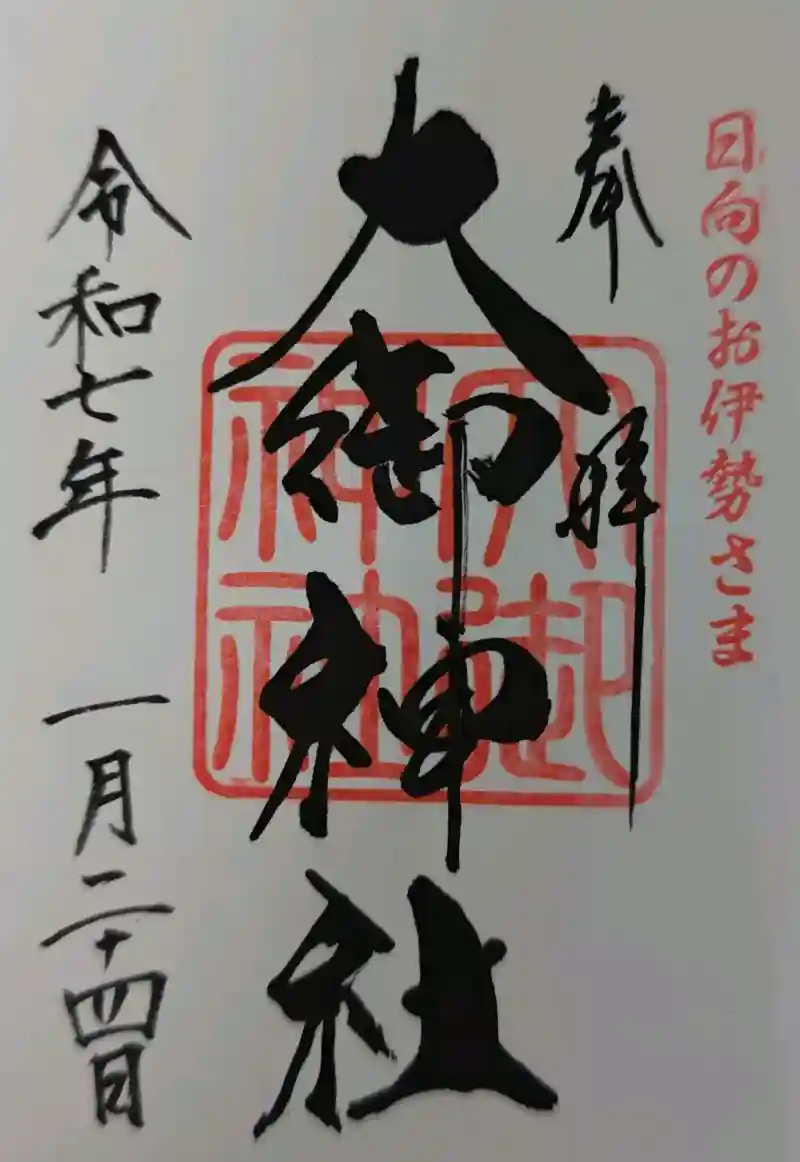 日向のお伊勢さま
奉拝
大御神社
大御
神社
令和七年 一月二十四日